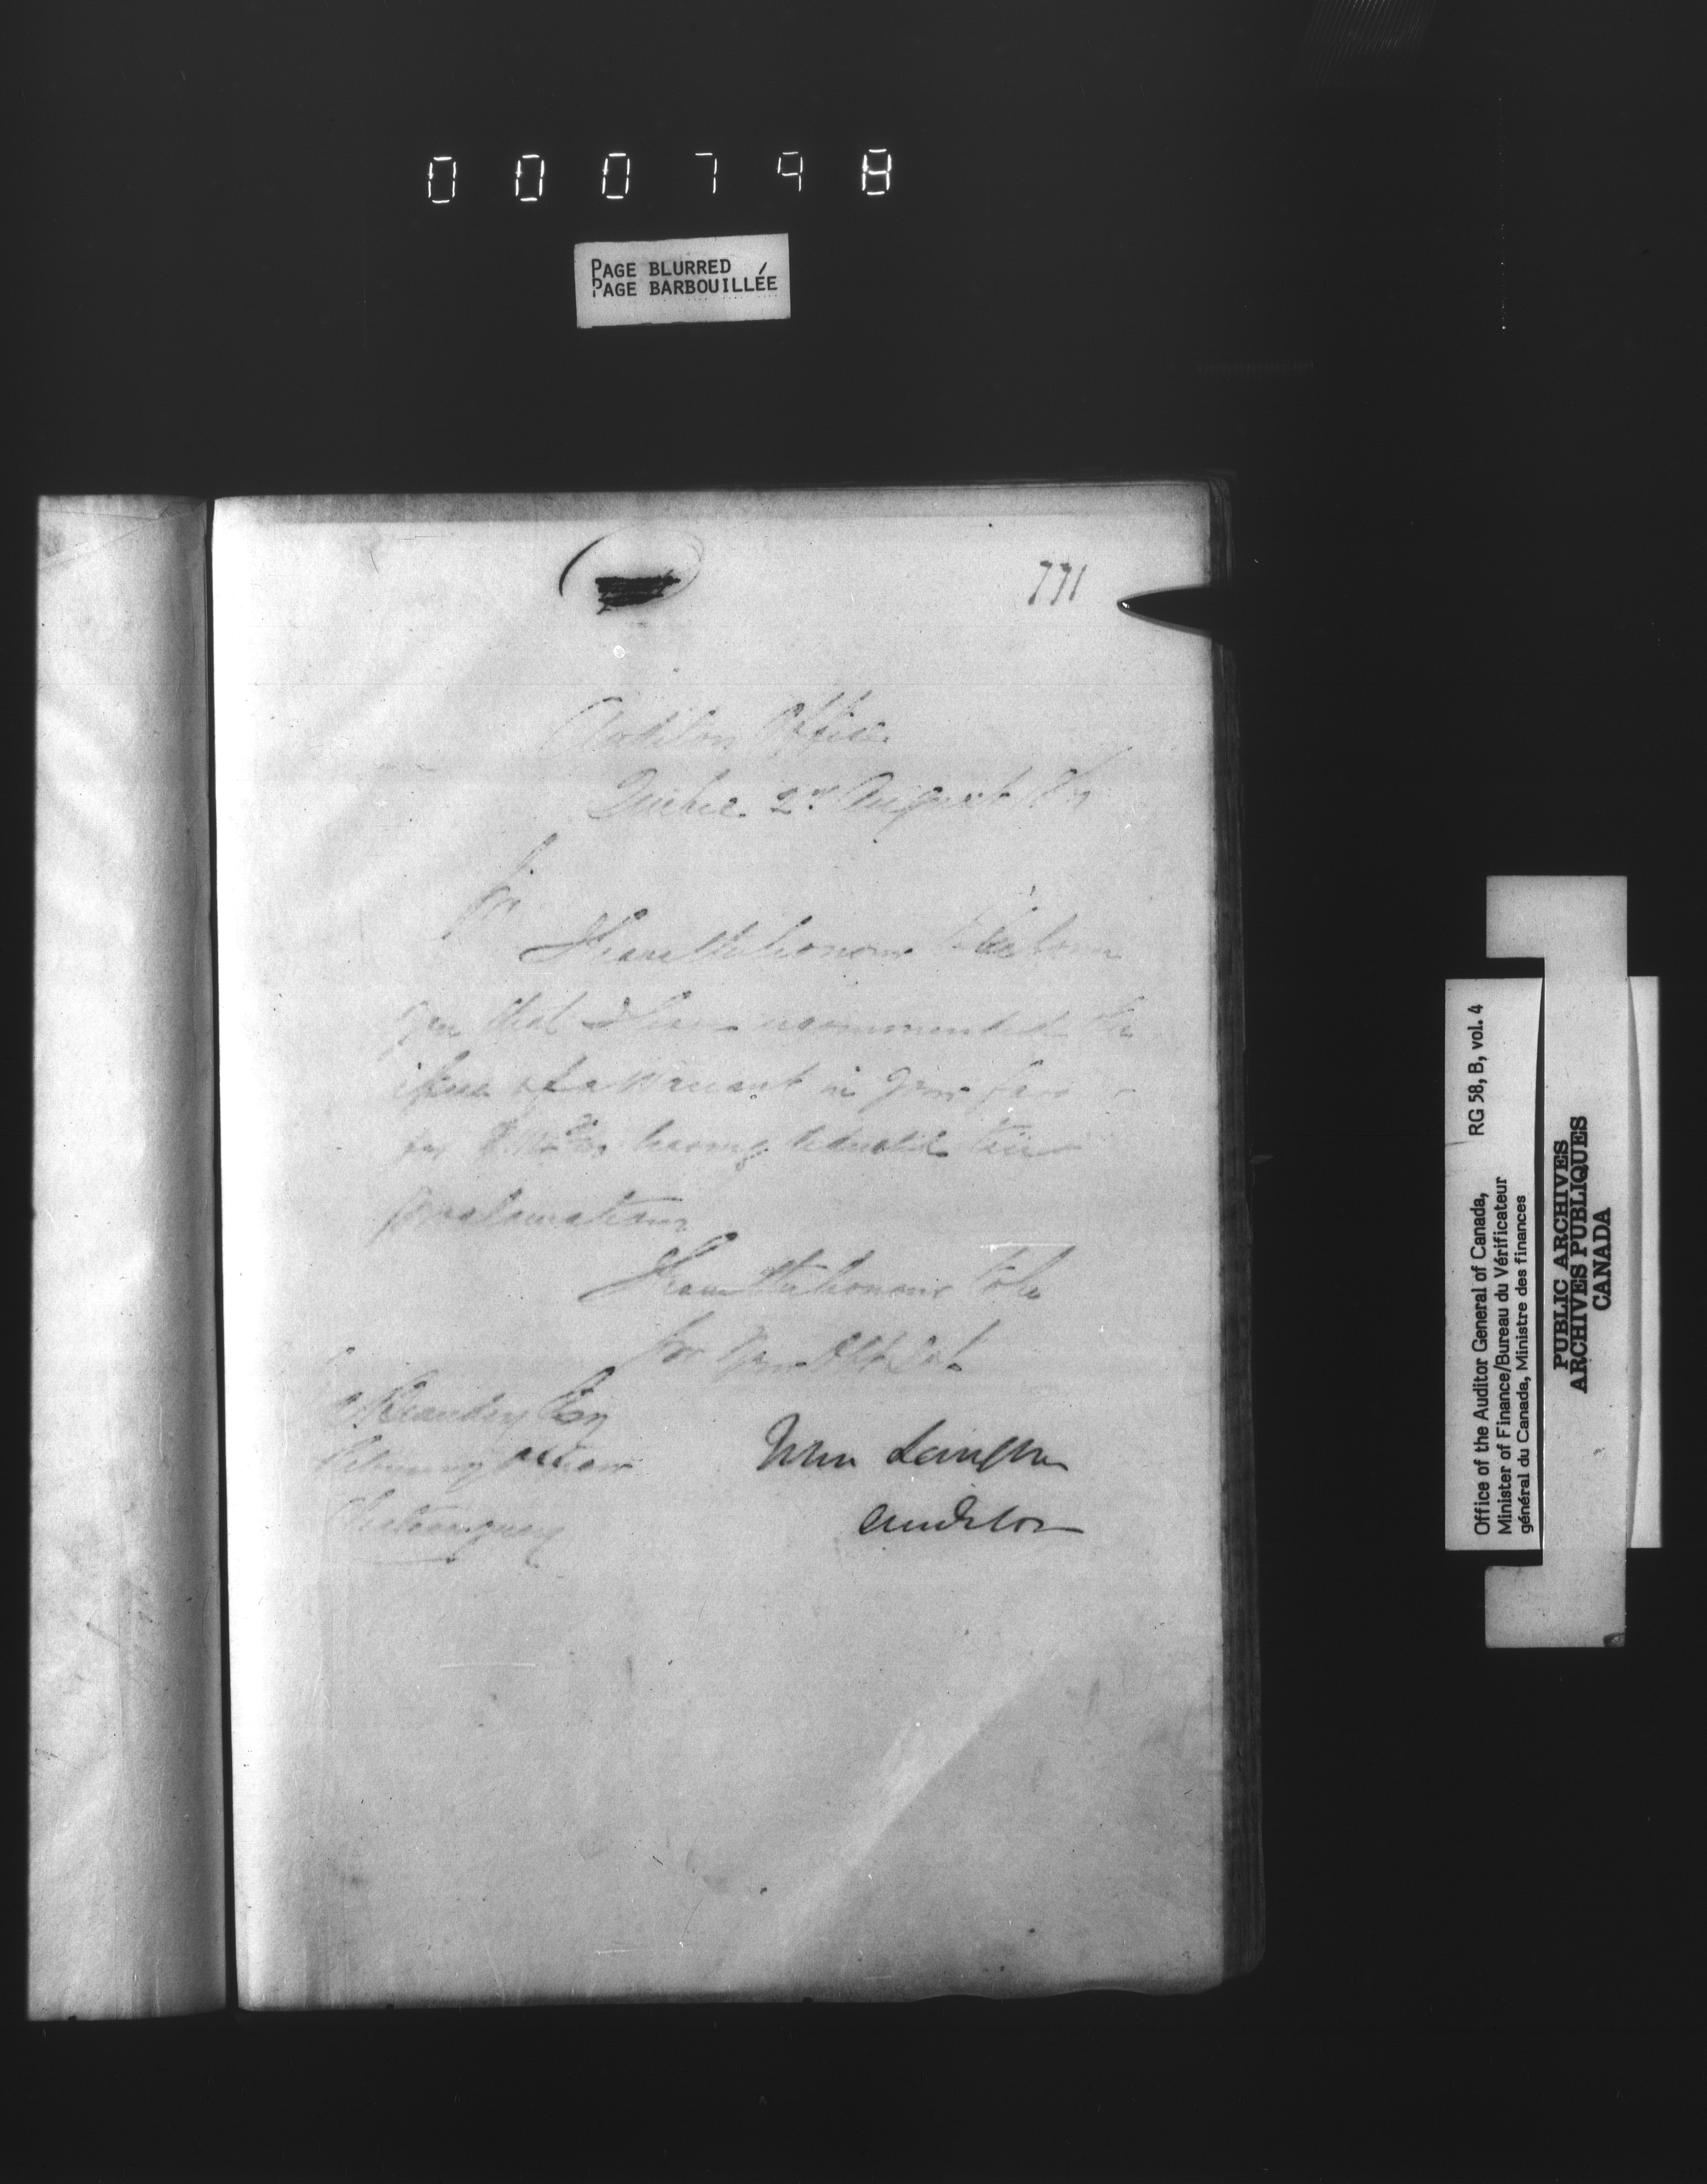 000798
PAGE BLURRED
PAGE BARBOUILLÉE
771
Audit Office
Quebec 2nd August
Sir
I have the honour to inform
you that I have recommended the
issue of a Warrant in your favor
for having
proclamations
I have the honour to be
Sir Your Obt Svt
Beaudry Esq
Returning Officer
Chateauguay
John Langton
Auditor
Office of the Auditor General of Canada, RG 58, B, vol. 4
Minister of Finance/Bureau du Vérificateur
général du Canada, Ministre des finances
PUBLIC ARCHIVES
ARCHIVES PUBLIQUES
CANADA